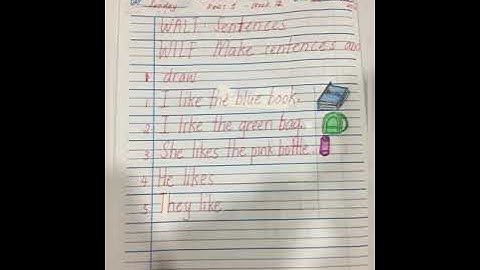 DAY Sunday Week 12
WALT: Sentences
WILF: Make sentences and
draw.
1. I like the blue book.
2. I like the green bag.
3. She likes the pink bottle.
4. He likes
5. They like